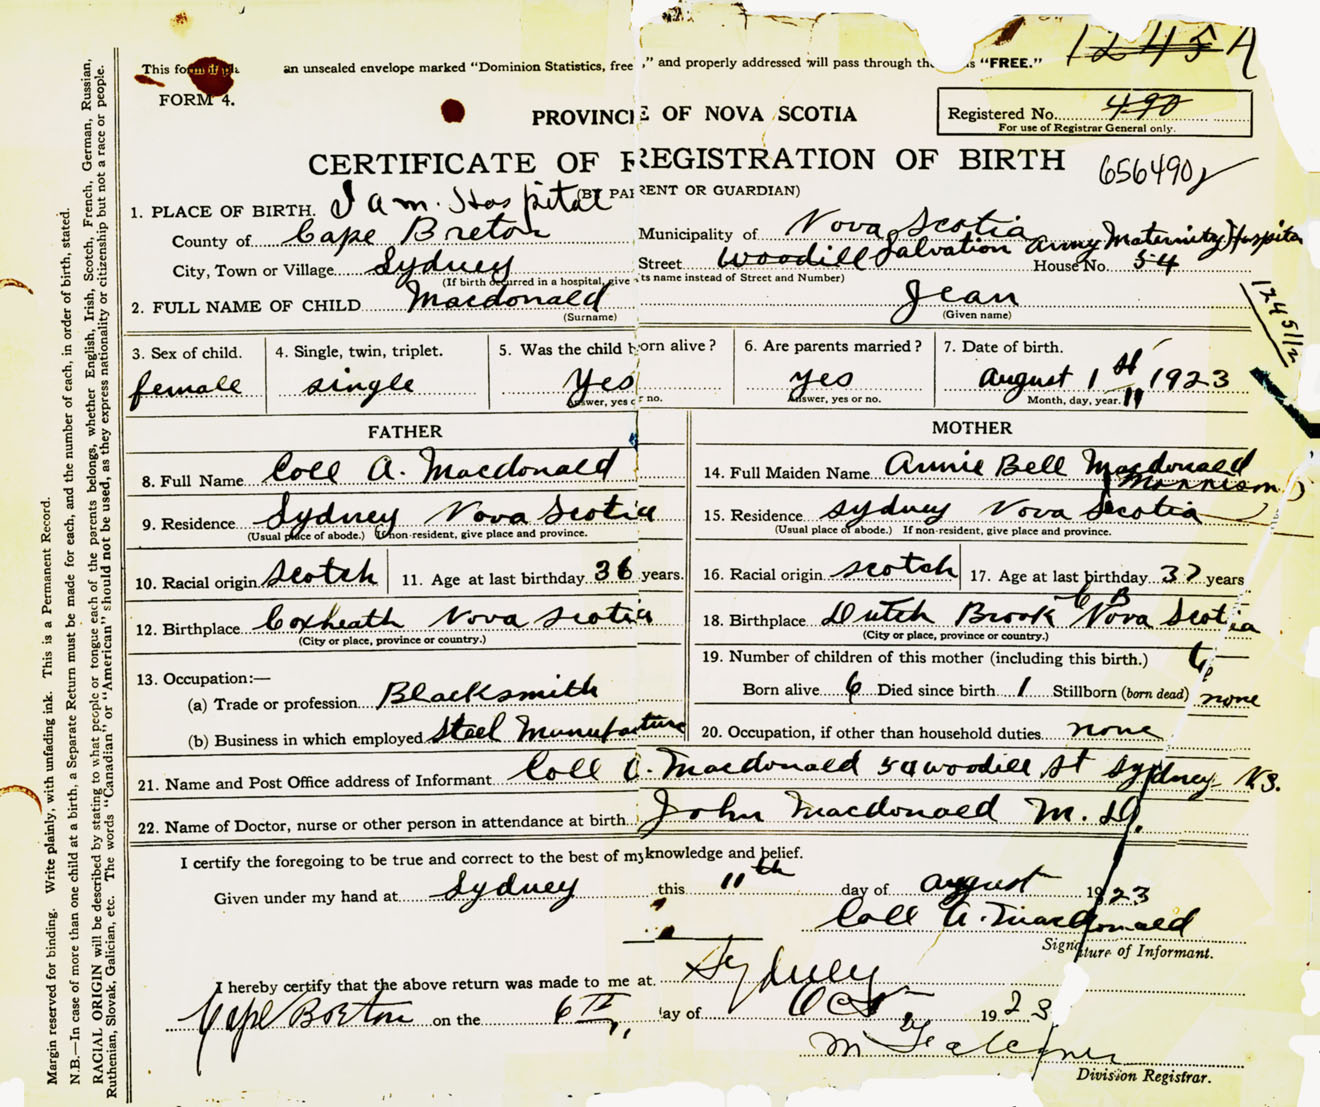 1245A
This form if pl an unsealed envelope marked "Dominion Statistics, free," and properly addressed will pass through the s "FREE."
FORM 4.
PROVINCE OF NOVA SCOTIA
Registered No. 490
For use of Registrar General only.
CERTIFICATE OF REGISTRATION OF BIRTH
656490
(BY PARENT OR GUARDIAN)
1. PLACE OF BIRTH. Hospital
County of Cape Breton Municipality of Nova Scotia
City, Town or Village Sydney Street Woodill Salvation Army Maternity Hospital House No. 54
(If birth occurred in a hospital, give its name instead of Street and Number)
2. FULL NAME OF CHILD Macdonald Jean
(Surname) (Given name)
12451/2
3. Sex of child. 4. Single, twin, triplet. 5. Was the child born alive? 6. Are parents married? 7. Date of birth.
female single Yes yes August 1st 1923
Answer, yes or no. Answer, yes or no. Month, day, year.
FATHER MOTHER
8. Full Name Coll A. Macdonald 14. Full Maiden Name Annie Bell Macdonald
Morrison
9. Residence Sydney Nova Scotia 15. Residence Sydney Nova Scotia
(Usual place of abode.) If non-resident, give place and province. (Usual place of abode.) If non-resident, give place and province.
10. Racial origin Scotch 11. Age at last birthday 36 years. 16. Racial origin scotch 17. Age at last birthday 37 years
12. Birthplace Coxheath Nova Scotia 18. Birthplace Dutch Brook C B Nova Scotia
(City or place, province or country.) (City or place, province or country.)
13. Occupation:— 19. Number of children of this mother (including this birth.) 6
(a) Trade or profession Blacksmith Born alive 6 Died since birth 1 Stillborn (born dead) none
(b) Business in which employed Steel Manufacture 20. Occupation, if other than household duties none
21. Name and Post Office address of Informant Coll A. Macdonald 54 Woodill St Sydney N.S.
22. Name of Doctor, nurse or other person in attendance at birth John Macdonald M.D.
I certify the foregoing to be true and correct to the best of my knowledge and belief.
Given under my hand at Sydney this 11th day of August 1923
Coll A. Macdonald
Signature of Informant.
I hereby certify that the above return was made to me at Sydney
Cape Breton on the 6th day of Oct 1923
Division Registrar.
Margin reserved for binding. Write plainly, with unfading ink. This is a Permanent Record.
N.B.—In case of more than one child at a birth, a Separate Return must be made for each, and the number of each, in order of birth, stated.
RACIAL ORIGIN will be described by stating to what people or tongue each of the parents belongs, whether English, Irish, Scotch, French, German, Russian,
Ruthenian, Slovak, Galician, etc. The words "Canadian" or "American" should not be used, as they express nationality or citizenship but not a race or people.